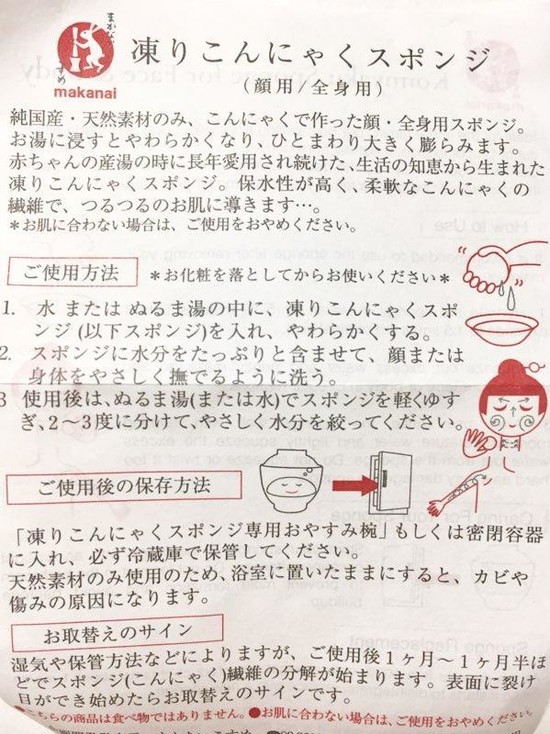 まかない
こすめ
makanai
凍りこんにゃくスポンジ
(顔用/全身用)
純国産・天然素材のみ、こんにゃくで作った顔・全身用スポンジ。
お湯に浸すとやわらかくなり、ひとまわり大きく膨らみます。
赤ちゃんの産湯の時に長年愛用され続けた、生活の知恵から生まれた
凍りこんにゃくスポンジ。保水性が高く、柔軟なこんにゃくの
繊維で、つるつるのお肌に導きます…。
*お肌に合わない場合は、ご使用をおやめください。
ご使用方法 *お化粧を落としてからお使いください*
1. 水 または ぬるま湯の中に、凍りこんにゃくスポ
ンジ(以下スポンジ)を入れ、やわらかくする。
2. スポンジに水分をたっぷりと含ませて、顔または
身体をやさしく撫でるように洗う。
3 使用後は、ぬるま湯(または水)でスポンジを軽くゆす
ぎ、2～3度に分けて、やさしく水分を絞ってください。
ご使用後の保存方法
「凍りこんにゃくスポンジ専用おやすみ椀」もしくは密閉容器
に入れ、必ず冷蔵庫で保管してください。
天然素材のみ使用のため、浴室に置いたままにすると、カビや
傷みの原因になります。
お取替えのサイン
湿気や保管方法などによりますが、ご使用後1ヶ月～1ヶ月半ほ
どでスポンジ(こんにゃく)繊維の分解が始まります。表面に裂け
目ができ始めたらお取替えのサインです。
●こちらの商品は食べ物ではありません。●お肌に合わない場合は、ご使用をおやめください。